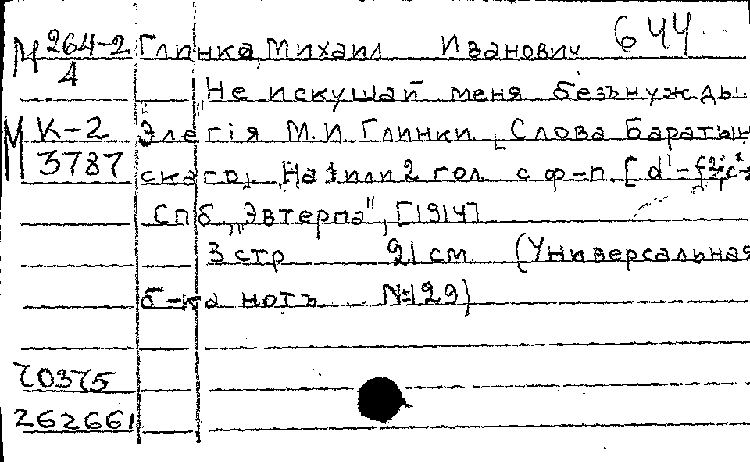 М 264-2 Глинка, Михаил Иванович 644
4
"Не искушай меня безъ нужды"
М К-2 Элегія М.И. Глинки [Слова Баратын
3787 скаго]. На 1 или 2 гол. с ф-п. [d'-
Спб, "Эвтерпа", [1914]
3 стр 21 см (Универсальная
б-ка нотъ №129)
70375
262661